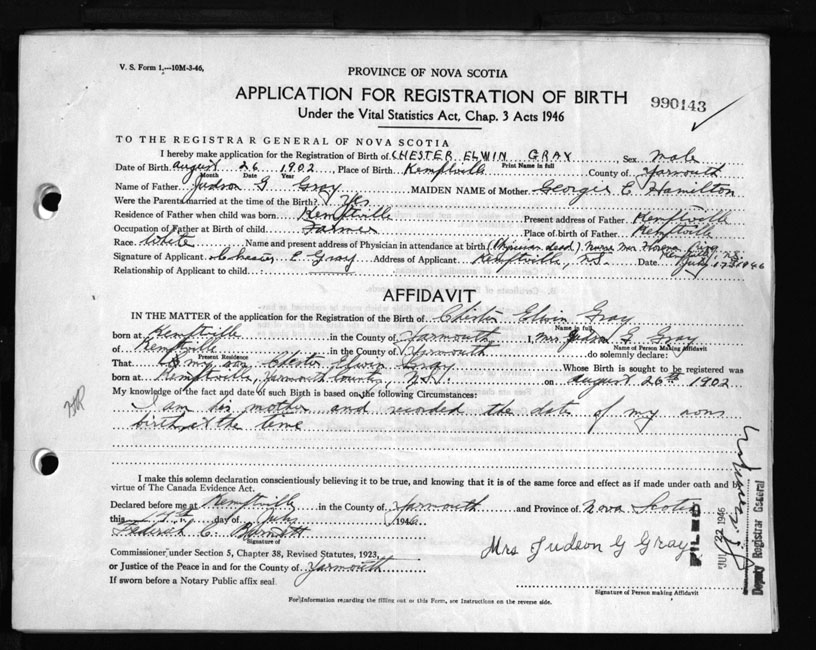 V. S. Form 1,—10M-3-46,
PROVINCE OF NOVA SCOTIA
APPLICATION FOR REGISTRATION OF BIRTH
990143
Under the Vital Statistics Act, Chap. 3 Acts 1946
TO THE REGISTRAR GENERAL OF NOVA SCOTIA
I hereby make application for the Registration of Birth of CHESTER ELWIN GRAY Sex male
Print Name in full
Date of Birth August 26 1902 Place of Birth Kemptville County of Yarmouth
Month Date Year
Name of Father Judson G Gray MAIDEN NAME of Mother Georgie E Hamilton
Were the Parents married at the time of the Birth? Yes
Residence of Father when child was born Kemptville Present address of Father Kemptville
Occupation of Father at Birth of child Farmer Place of birth of Father Kemptville
Race White Name and present address of Physician in attendance at birth (Physician dead) Nurse Mrs
Kemptville, N.S.
Signature of Applicant Chester E Gray Address of Applicant Kemptville, N.S. Date July 1946
Relationship of Applicant to child
AFFIDAVIT
IN THE MATTER of the application for the Registration of the Birth of Chester Elwin Gray
Name in full
born at Kemptville in the County of Yarmouth I, Mrs Judson G Gray
Name of Person Making Affidavit
of Kemptville in the County of Yarmouth do solemnly declare:
Present Residence
That my son Chester Elwin Gray Whose Birth is sought to be registered was
born at Kemptville, Yarmouth County, N.S. on August 26th 1902
My knowledge of the fact and date of such Birth is based on the following Circumstances:
I am his mother and recorded the date of my sons
birth at the time
I make this solemn declaration conscientiously believing it to be true, and knowing that it is of the same force and effect as if made under oath and by
virtue of The Canada Evidence Act.
Declared before me at Kemptville in the County of Yarmouth and Province of Nova Scotia
this day of July 1946
Signature of
Mrs Judson G Gray
Commissioner under Section 5, Chapter 38, Revised Statutes, 1923,
or Justice of the Peace in and for the County of Yarmouth
If sworn before a Notary Public affix seal.
Signature of Person making Affidavit
For Information regarding the filling out of this Form, see Instructions on the reverse side.
FILED
JUL 22 1946
Deputy Registrar General